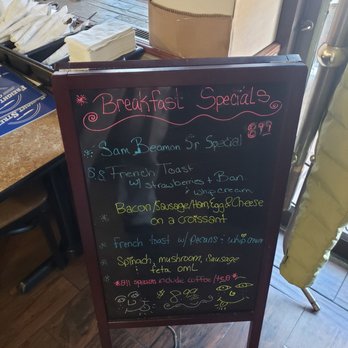 Breakfast Specials
8.99
Sam Beamon Sr Special
French Toast
w/ strawberries + Ban
+ whip cream
Bacon/Sausage/Ham, Egg & Cheese
on a croissant
French toast w/ Pecans + whip cream
Spinach, mushroom, Sausage
feta oml
All specials include coffee
$8.99